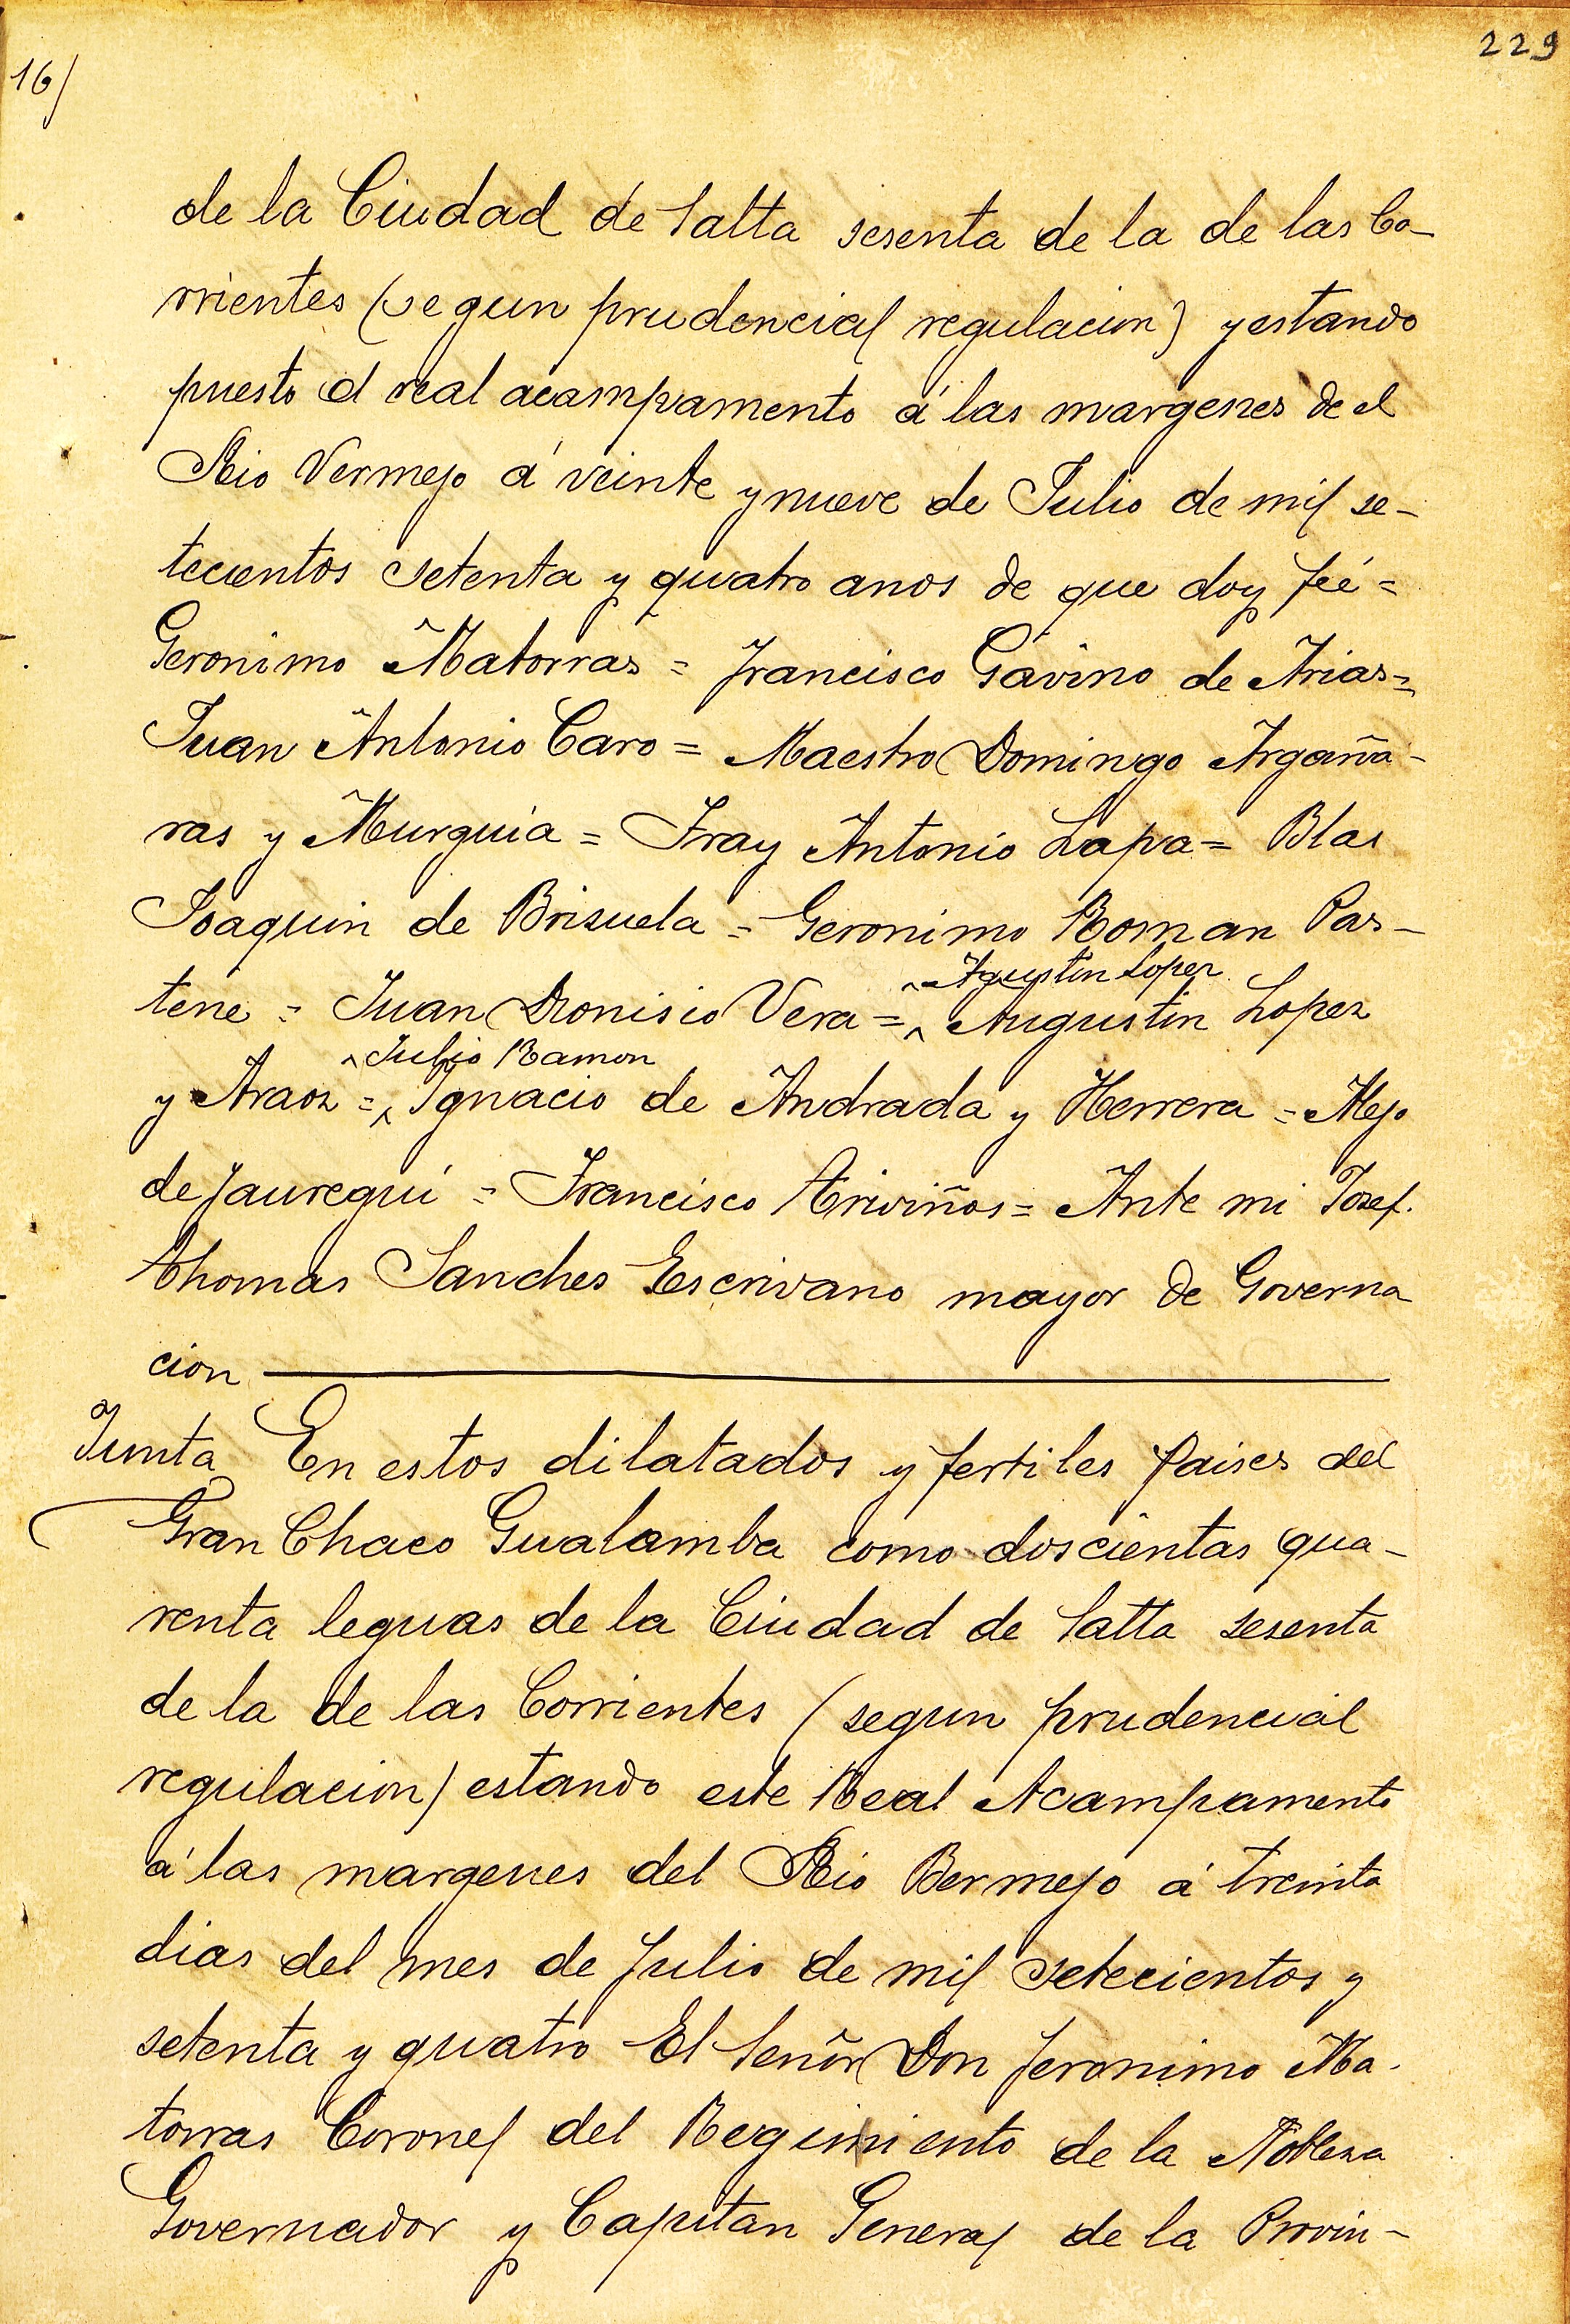 229
16/
de la Ciudad de Salta sesenta de la de las Co-
rrientes (segun prudencial regulacion) y estando
puesto el real acampamento á las margenes de el
Rio Vermejo á veinte y nueve de Julio de mil se-
tecientos setenta y quatro anos de que doy feé =
Geronimo Matorras = Francisco Gavino de Arias =
Juan Antonio Caro = Maestro Domingo Argaña-
ras y Murguia = Fray Antonio Lapa = Blas
Joaquin de Brizuela = Geronimo Roman Pas-
^ Agustin Lopez
tene = Juan Dionisio Vera = ^ Augustin Lopez
^ Julio Ramon
y Araoz = ^ Ignacio de Andrada y Herrera = Alejo
de Jauregui = Francisco Ariviños = Ante mi Josef.
Thomas Sanches Escrivano mayor de Governa
cion
Junta En estos dilatados y fertiles Paises del
Gran Chaco Gualamba como doscientas qua-
renta leguas de la Ciudad de Salta sesenta
de la de las Corrientes (segun prudencial
regulacion) estando este Real Acampamento
á las margenes del Rio Bermejo á treinta
dias del mes de Julio de mil setecientos y
setenta y quatro El Señor Don Jeronimo Ma-
torras Coronel del Regimiento de la Nobleza
Governador y Capitan General de la Provin-